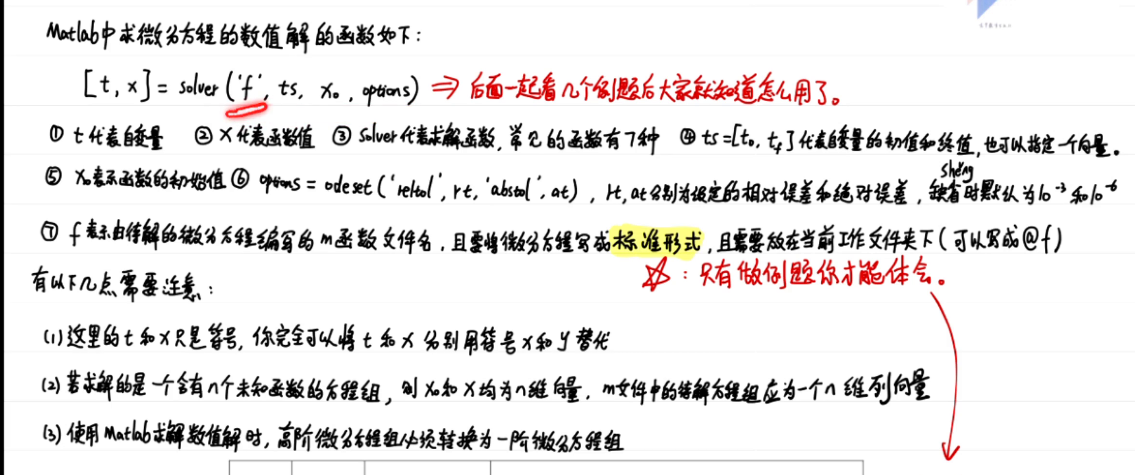 Matlab中求微分方程的数值解的函数如下：
[t, x] = solver ('f', ts, x₀, options) ⇒ 后面一起看几个例题后大家就知道怎么用了。
① t代表自变量 ② X代表函数值 ③ Solver代表求解函数，常见的函数有7种 ④ ts=[t₀, t_f]代表自变量的初值和终值，也可以指定一个向量。
⑤ X₀表示函数的初始值 ⑥ options = odeset('reltol', rt, 'abstol', at)，rt, at分别为设定的相对误差和绝对误差，缺省时默认为10⁻³和10⁻⁶
shěng
⑦ f表示由待解的微分方程编写的m函数文件名，且要将微分方程写成标准形式，且需要放在当前工作文件夹下（可以写成@f）
☆：只有做例题你才能体会。
有以下几点需要注意：
(1)这里的t和X只是符号，你完全可以将t和X分别用符号X和y替代
(2)若求解的是一个含有n个未知函数的方程组，则X₀和X均为n维向量，m文件中的待解方程组应为一个n维列向量
(3)使用Matlab求解数值解时，高阶微分方程组必须转换为一阶微分方程组